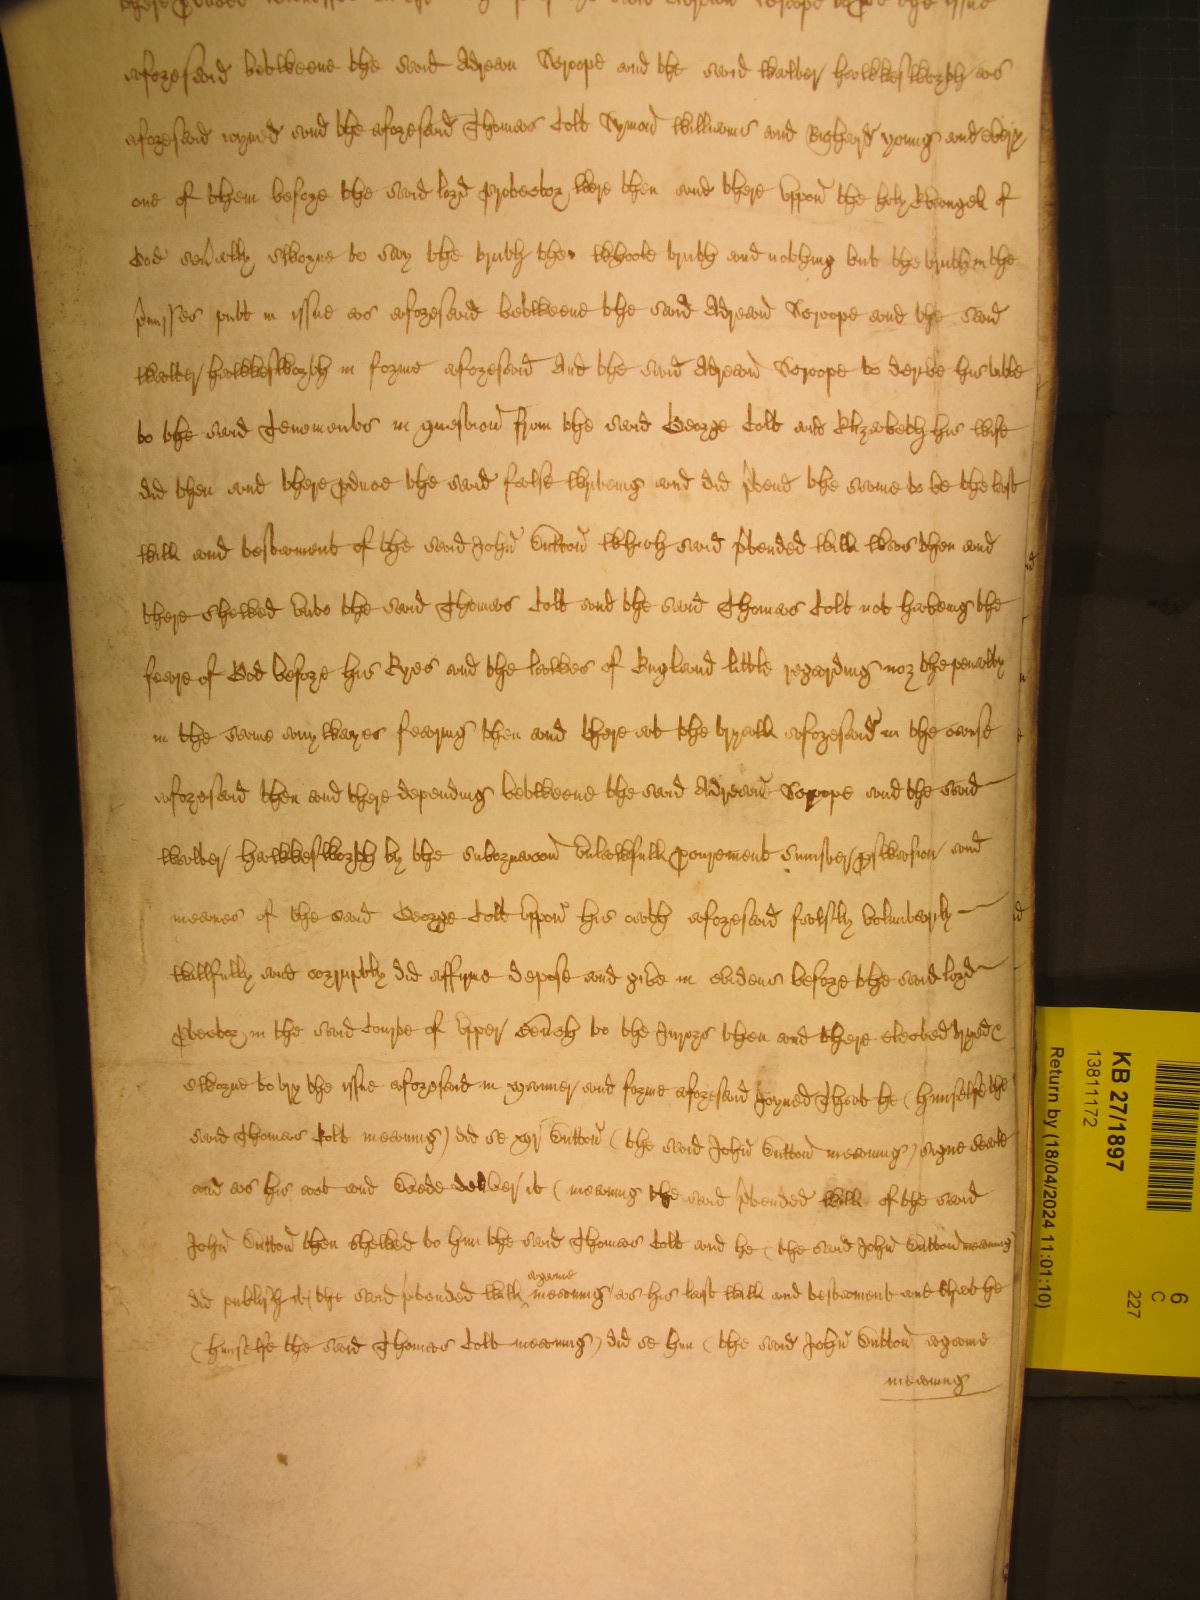 there produced witnesses on the of the said Adrean Scroope to prove the issue
aforesaid betweene the said Adrean Scroope and the said Walter Hawkesworth as
aforesaid ioyned and the aforesaid Thomas Colt Symon Williams and Richard Young and every
one of them before the said lord Protector were then and there uppon the holy Evangell of
God sevally sworne to say the truth the whoole truth and nothing but the truth in the
pmisses putt in issue as aforesaid betweene the said Adrean Scroope and the said
Walter Hawkesworth in forme aforesaid And the said Adrean Scroope to derive his title
to the said Tenements in question from the said George Colt and Elizabeth his wife
did then and there pduce the said false writeing and did ptend the same to be the last
will and testament of the said John Sutton which said ptended will was then and
there shewed unto the said Thomas Colt and the said Thomas Colt not haveing the
feare of God before his Eyes and the lawes of England little regarding nor the penalty
in the same any wayes fearing then and there at the tryall aforesaid in the cause
aforesaid then and there depending betweene the said Adrean Scroope and the said
Walter Hawkesworth by the subornacon unlawfull pcurement sinister pswasion and
meanes of the said George Colt uppon his oath aforesaid falsly voluntaryly
willfully and corruptly did affirme depose and give in evidence before the said lord
Ptector in the said Courte of Upper Bench to the Jurors then and there elected tryed &
sworne to try the issue aforesaid in manner and forme aforesaid Joyned That he (himselfe the
said Thomas Colt meaning) did se Mr Sutton (the said John Sutton meaning) signe seale
and as his act and Deede deliver it (meaning the said ptended will of the said
John Sutton then shewed to him the said Thomas Colt and he (the said John Sutton meaning)
did publish it (the said ptended will againe meaning) as his last will and testament and that he
(himselfe the said Thomas Colt meaning) did se him (the said John Sutton againe
meaning
KB 27/1897
13811172
Return by (18/04/2024 11:01:10)
6
C
227